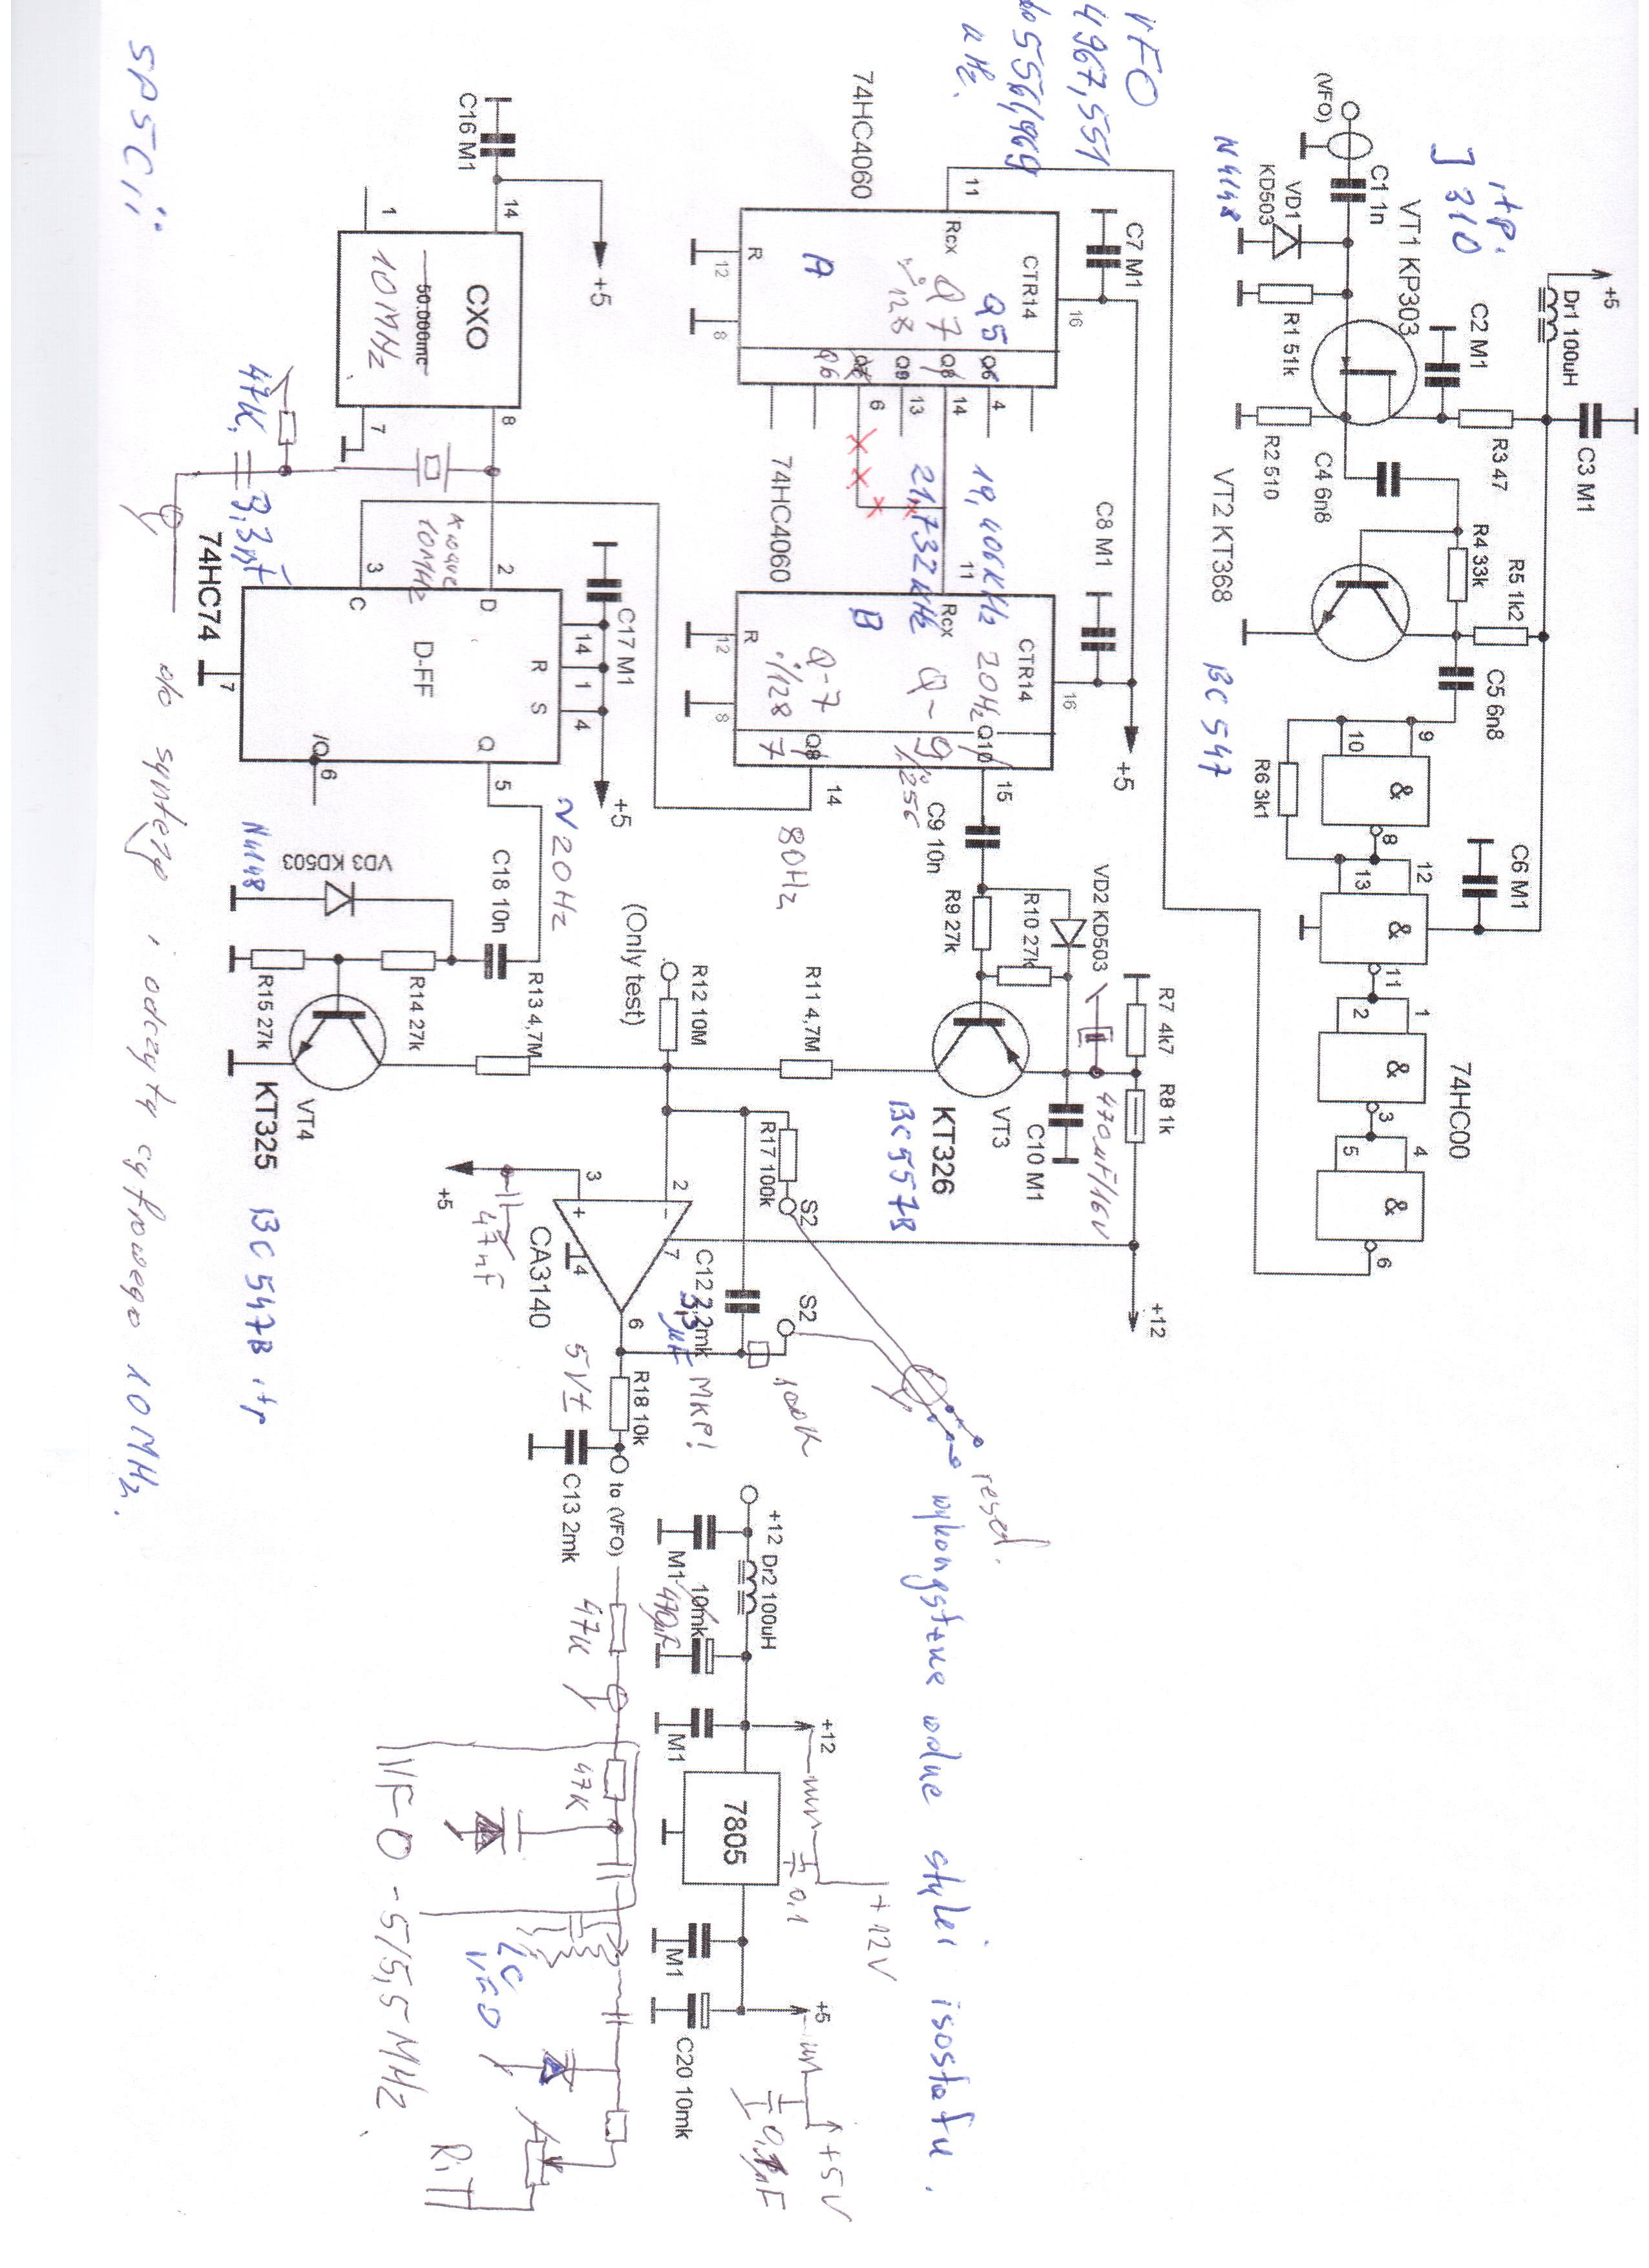 VFO
4967,551
do 5561,969
kHz.
itp.
J 310
(VFO)
C1 1n
VT1 KP303
VD1
KD503
N4148
R1 51k
R2 510
C2 M1
+5
Dr1 100uH
R3 47
C3 M1
C4 6n8
VT2 KT368
BC 547
R4 33k
R5 1k2
C5 6n8
R6 3k1
9
10
&
8
C6 M1
12
13
&
11
1
2
&
3
74HC00
4
5
&
6
74HC4060
11
Rcx
CTR14
C7 M1
16
R
12
8
A
Q5
Q7
:128
Q6
Q8
Q9
Q7
Q6
4
14
13
6
19,406KHz
21,732KHz
74HC4060
11
Rcx
CTR14
C8 M1
16
+5
R
12
8
B
Q-7
:/128
7
20Hz
Q-9
:/256
Q10
Q8
15
14
80Hz
C9 10n
VD2 KD503
R9 27k
R10 27k
R7 4k7
R8 1k
470µF/16V
C10 M1
VT3
KT326
BC557B
+12
R11 4,7M
R12 10M
(Only test)
R13 4,7M
R17 100k
S2
S2
reset.
100k
C12 2,2mk
3,3
µF
MKP!
2
3
7
4
6
CA3140
+5
47nF
5V±
R18 10k
C13 2mk
to (VFO)
47K
47K
VFO - 5/5,5 MHz
LC
VFO
RiT
C16 M1
+5
14
1
CXO
50.000mc
10MHz
7
8
47K
3,3nF
Kwarc
10MHz
2
3
D
C
D-FF
R
S
Q
/Q
14
1
4
C17 M1
+5
5
6
7
74HC74
~20Hz
C18 10n
VD3 KD503
N4148
R14 27k
R15 27k
VT4
KT325
BC547B itp
+12
Dr2 100uH
M1
10mk
470µF
M1
+12
7805
0,1
+12V
M1
C20 10mk
+5
+5V
0,1µF
do syntezy i odczytu cyfrowego 10MHz.